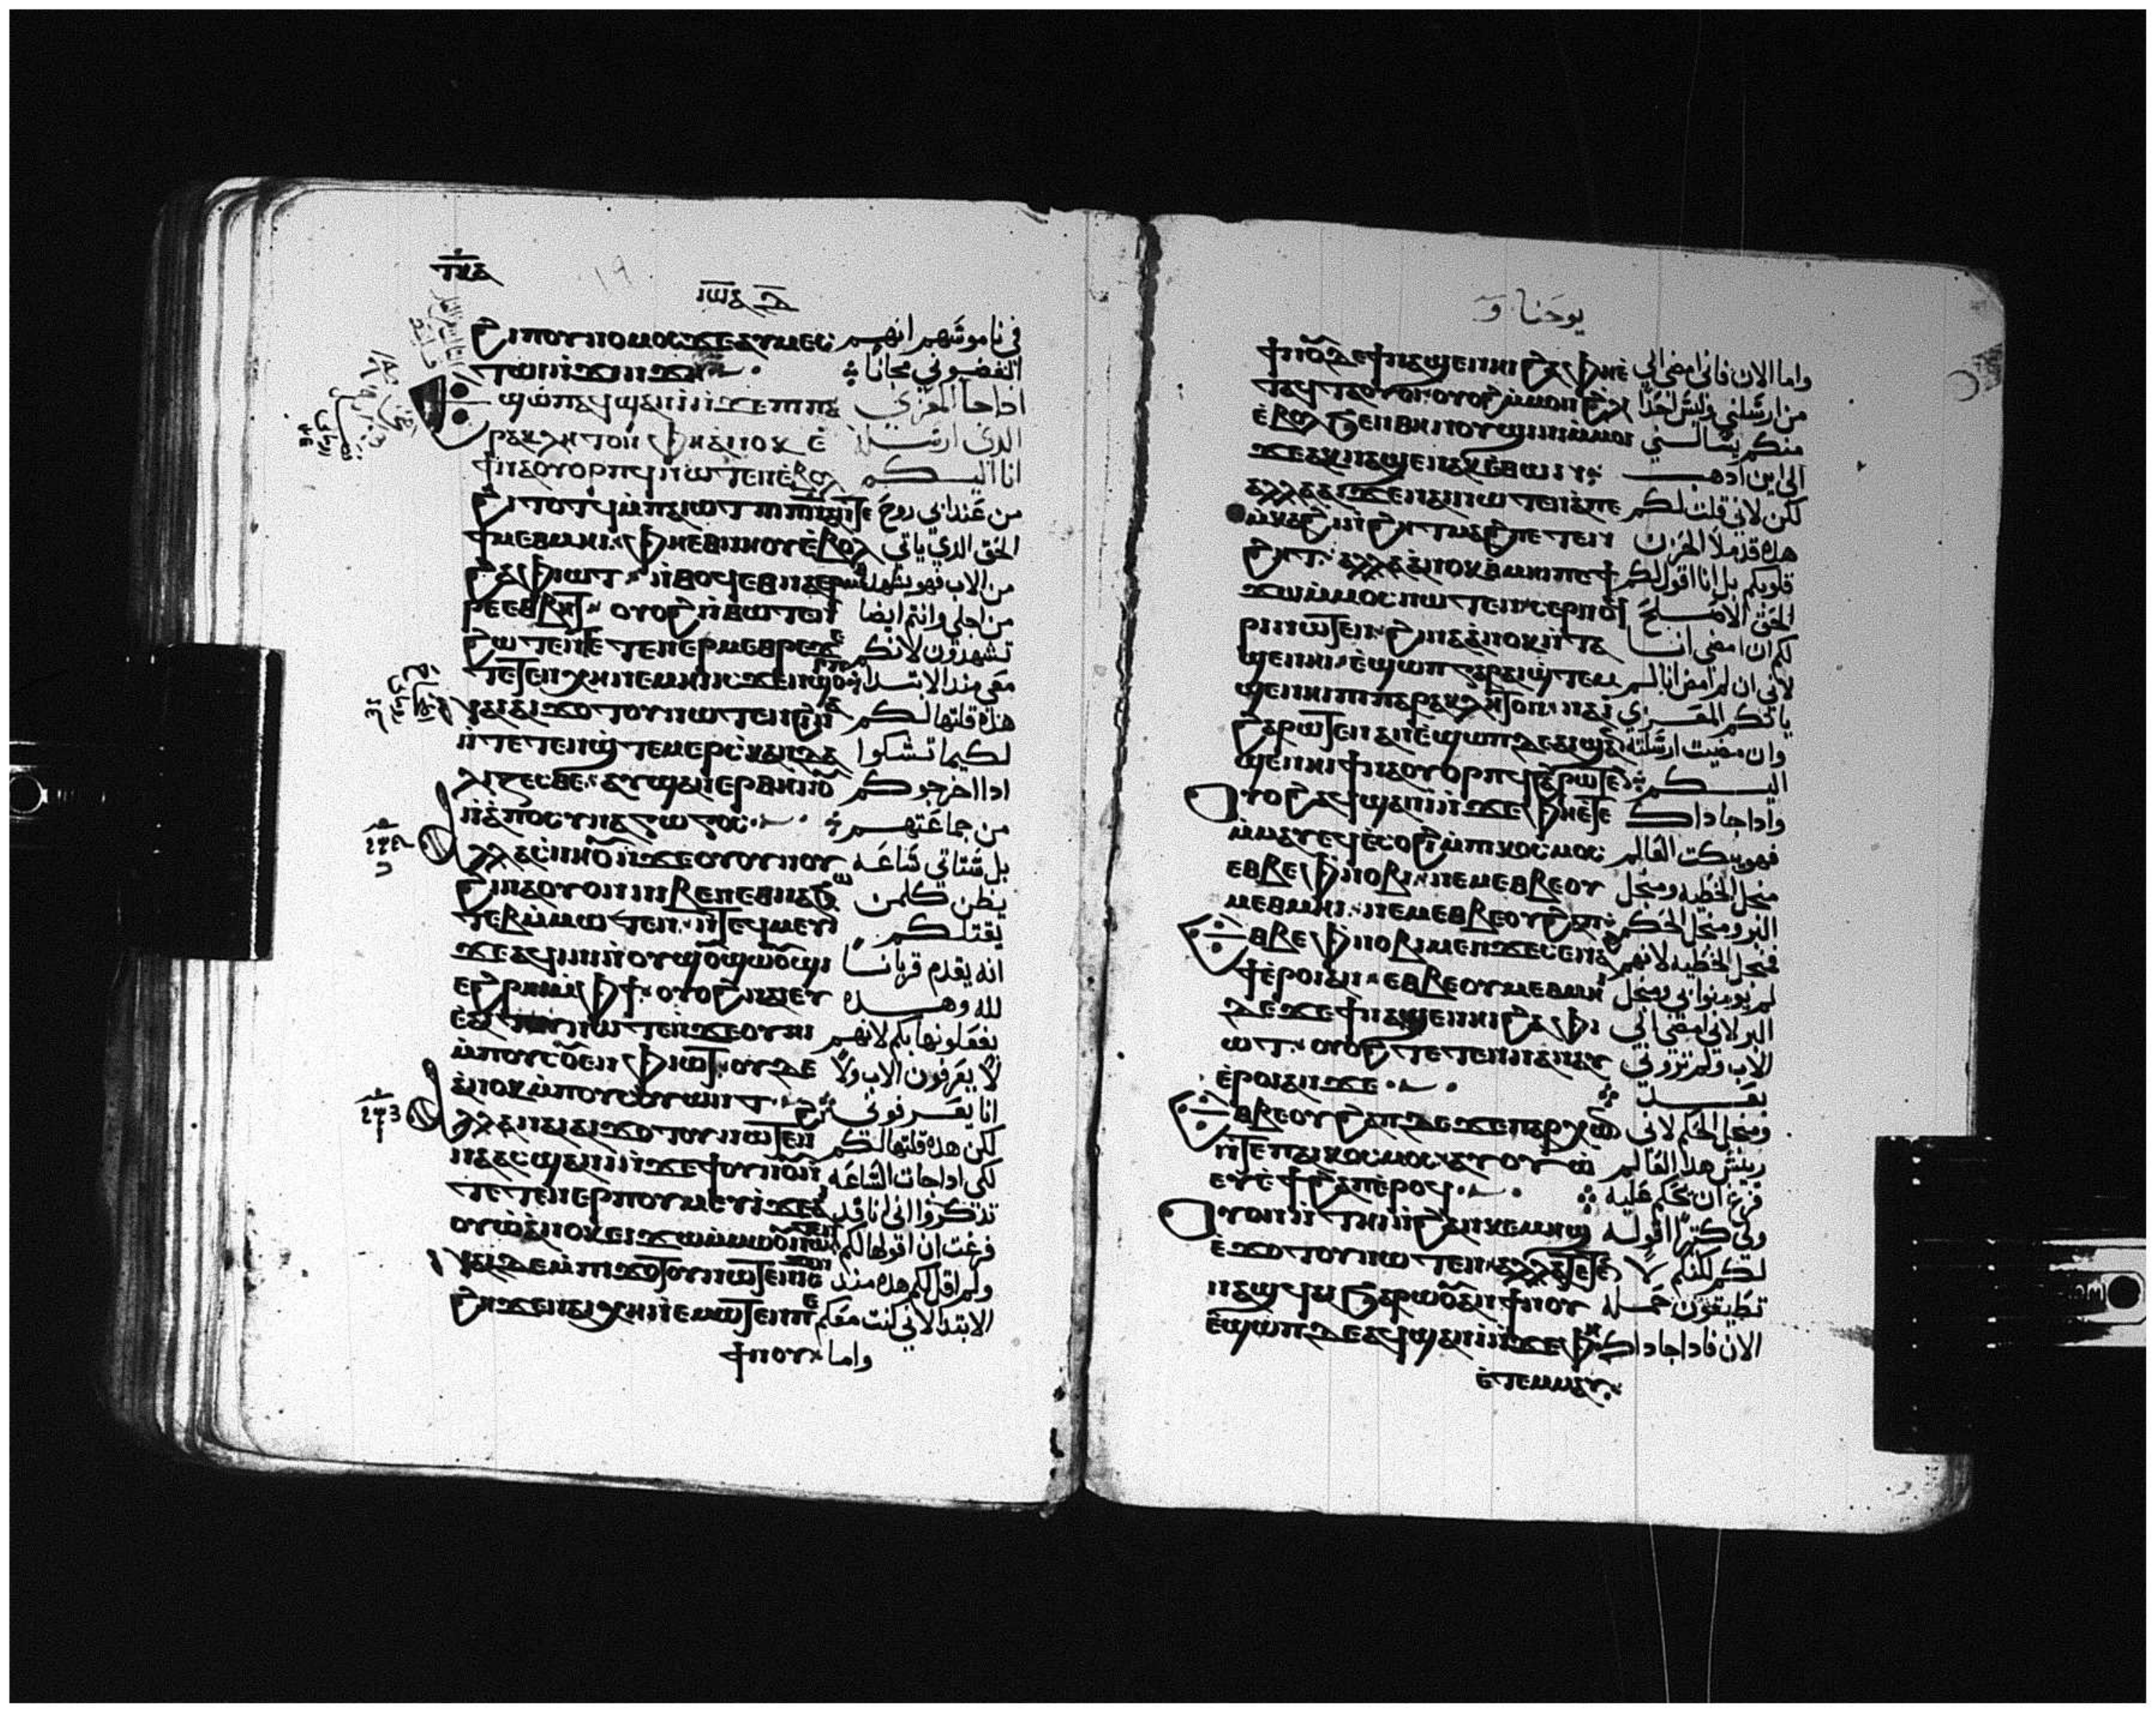 ⲧⲕⲇ
ⲓⲱⲁ
ϩⲓ ⲡⲟⲩⲛⲟⲙⲟⲥ ϫⲉ ⲁⲩⲙⲉⲥ في ناموسهم انهم
ⲧⲱⲓ ⲛ̀ϫⲓⲛϫⲏ ابغضوني مجانا
ϣⲱⲡ ⲁϥϣⲁⲛⲓ̀ ⲛ̀ϫⲉ ⲡⲓⲡⲁ اذا جا المعزي
ⲣⲁⲕⲗⲏⲧⲟⲛ ⲫⲏ ⲁ̀ⲛⲟⲕ ⲉ̀ الذي ارسله
ϯⲛⲁⲟⲩⲟⲣⲡϥ ⲛⲱⲧⲉⲛ ⲉ̀ⲃⲟⲗ انا اليكم
ϩⲓⲧⲟⲧϥ ⲙ̀ⲡⲁⲓⲱⲧ ⲡⲓⲡⲛ̅ⲁ̅ ⲛ̀ⲧⲉ من عند ابي روح
ϯⲙⲉⲑⲙⲏⲓ ⲫⲏ ⲉⲑⲛⲏⲟⲩ ⲉ̀ⲃⲟⲗ الحق الدي ياتي
ϩⲁ ⲫⲓⲱⲧ ⲛ̀ⲑⲟϥ ⲉⲑⲛⲁⲉⲣⲙⲉⲑ من الاب فهو يشهد
ⲣⲉ ⲉⲑⲃⲏⲧ ⲟⲩⲟϩ ⲛ̀ⲑⲱⲧⲉⲛ من اجلي وانتم ايضا
ϩⲱⲧⲉⲛ ⲧⲉⲧⲉⲛⲉⲣⲙⲉⲑⲣⲉ ϫⲉ تشهدون لانكم
ⲧⲉⲧⲉⲛⲭⲏ ⲛⲉⲙⲏⲓ ⲓⲥϫⲉⲛ ϣⲟⲣⲡ معي مند الابتدا
ⲛⲁⲓ ⲁⲓϫⲟⲧⲟⲩ ⲛⲱⲧⲉⲛ ϩⲓⲛⲁ هذه قلتها لكم
ⲛ̀ⲧⲉⲧⲉⲛϣ̀ⲧⲉⲙⲉⲣⲥ̀ⲕⲁⲛⲇⲁ لكيما تشكوا
ⲗⲓⲍⲉⲥⲑⲉ ⲁⲩϣⲁⲛⲉⲣ ⲑⲏⲛⲟⲩ ادا اخرجوكم
ⲛ̀ⲁ̀ⲡⲟⲥⲩⲛⲁⲅⲱⲅⲟⲥ من جماعتهم
ⲁⲗⲗⲁ ⲥ̀ⲛⲏⲟⲩ ⲛ̀ϫⲉ ⲟⲩⲟⲩⲛⲟⲩ بل ستاتي ساعه
ϩⲓⲛⲁ ⲟⲩⲟⲛ ⲛⲓⲃⲉⲛ ⲉⲑⲛⲁϧⲱ يظن كلمن
ⲧⲉⲃ ⲙ̀ⲙⲱⲧⲉⲛ ⲛ̀ⲧⲉϥⲙⲉⲩⲓ̀ يقتلكم
ϫⲉ ⲁϥⲓ̀ⲛⲓ ⲛ̀ⲟⲩϣⲟⲩϣⲱⲟⲩϣⲓ انه يقدم قربانا
ⲉϩⲣⲏⲓ ⲙ̀ⲫϯ ⲟⲩⲟϩ ⲛⲁⲓ ⲉⲩ لله وهده
ⲉ̀ⲁⲓⲧⲟⲩ ⲛⲱⲧⲉⲛ ϫⲉ ⲟⲩⲏⲓ يفعلونها بكم لانهم
ⲙ̀ⲡⲟⲩⲥⲟⲩⲉⲛ ⲫⲓⲱⲧ ⲟⲩⲇⲉ لا يعرفون الاب ولا
ⲁ̀ⲛⲟⲕ ⲙ̀ⲡⲟⲩⲥⲟⲩⲱⲛⲧ انا يعرفوني
ⲁⲗⲗⲁ ⲛⲁⲓ ⲁⲓϫⲟⲧⲟⲩ ⲛⲱⲧⲉⲛ لكن هده قلتها لكم
ϩⲓⲛⲁ ⲁⲥϣⲁⲛⲓ̀ ⲛ̀ϫⲉ ϯⲟⲩⲛⲟⲩ ⲛ̀ لكي ادا جات الساعه
ⲧⲉⲧⲉⲛⲉⲣⲫⲙⲉⲩⲓ̀ ϫⲉ ⲁ تذكروا اني انا قد
ⲟⲩⲱ ⲁ̀ⲛⲟⲕ ⲉⲓϫⲱ ⲙ̀ⲙⲱⲟⲩ ⲛⲱⲧⲉⲛ فرغت ان اقولها لكم
ⲛⲁⲓ ⲇⲉ ⲙ̀ⲡⲓϫⲟⲧⲟⲩ ⲛⲱⲧⲉⲛ ⲓⲥϫⲉⲛ ولم اقل لكم هده مند
ϩⲏ ϫⲉ ⲛⲁⲓⲭⲏ ⲛⲉⲙⲱⲧⲉⲛ ⲡⲉ الابتدا لاني كنت معكم
ϯⲛⲟⲩ واما
يوحنا
ϯⲛⲟⲩ ⲇⲉ ϯⲛⲁϣⲉ ⲛⲏⲓ ϩⲁ ⲫⲏ ⲉ̀ واما الان فاني امضي الي
ⲧⲁϥⲧⲁⲟⲩⲟⲓ ⲟⲩⲟϩ ⲙ̀ⲙⲟⲛ ϩⲗⲓ من ارسلني وليس احدا
ⲉ̀ⲃⲟⲗ ϧⲉⲛ ⲑⲏⲛⲟⲩ ϣⲓⲛⲓ ⲙ̀ⲙⲟⲓ منكم يسالني
ϫⲉ ⲁⲕⲛⲁϣⲉ ⲛⲁⲕ ⲉ̀ⲑⲱⲛ الي اين ادهب
ⲁⲗⲗⲁ ⲁⲓϫⲉ ⲛⲁⲓ ⲛⲱⲧⲉⲛ ⲁ̀ⲡⲉ لكن لاني قلت لكم
ⲙ̀ⲕⲁϩ ⲛ̀ϩⲏⲧ ⲙⲁϩ ⲡⲉⲧⲉⲛ هده قد ملا الحزن
ϩⲏⲧ ⲁⲗⲗⲁ ⲁ̀ⲛⲟⲕ ⲑⲙⲏⲓ ⲡⲉϯ قلوبكم بل انا اقول لكم
ϫⲱ ⲙ̀ⲙⲟⲥ ⲛⲱⲧⲉⲛ ⲥⲉⲣⲛⲟϥ الحق الاصلح
ⲣⲓ ⲛⲱⲧⲉⲛ ϩⲓⲛⲁ ⲁ̀ⲛⲟⲕ ⲛ̀ⲧⲁ لكم ان امضي انا
ϣⲉ ⲛⲏⲓ ⲉ̀ϣⲱⲡ ⲅⲁⲣ ⲁⲓϣ̀ⲧⲉⲙ لاني ان لم امض انا لم
ϣⲉ ⲛⲏⲓ ⲡⲓⲡⲁⲣⲁⲕⲗⲏⲧⲟⲛ ⲛⲁⲓ ياتكم المعزي
ϩⲁⲣⲱⲧⲉⲛ ⲁⲛ ⲉ̀ϣⲱⲡ ⲇⲉ ⲁⲓϣⲁⲛ وان مضيت ارسلته
ϣⲉ ⲛⲏⲓ ϯⲛⲁⲟⲩⲟⲣⲡϥ ϩⲁⲣⲱⲧⲉⲛ اليكم
ⲟⲩⲟϩ ⲁϥϣⲁⲛⲓ̀ ⲛ̀ϫⲉ ⲫⲏ ⲉ̀ⲧⲉ وادا جا داك
ⲙ̀ⲙⲁⲩ ⲉϥⲉ̀ⲥⲟϩⲓ ⲙ̀ⲡⲓⲕⲟⲥⲙⲟⲥ فهو يبكت العالم
ⲉⲑⲃⲉ ⲫⲛⲟⲃⲓ ⲛⲉⲙ ⲉⲑⲃⲉ ⲟⲩ منجل الخطيه ومنجل
ⲙⲉⲑⲙⲏⲓ ⲛⲉⲙ ⲉⲑⲃⲉ ⲟⲩϩⲁⲡ البر ومنجل الحكم
ⲉⲑⲃⲉ ⲫⲛⲟⲃⲓ ⲙⲉⲛ ϫⲉ ⲥⲉⲛⲁϩ فمنجل الخطيه لانهم
ϯ ⲉ̀ⲣⲟⲓ ⲁⲛ ⲉⲑⲃⲉ ⲟⲩⲙⲉⲑⲙⲏⲓ لم يومنوا بي ومنجل
ⲇⲉ ϫⲉ ϯⲛⲁϣⲉ ⲛⲏⲓ ϩⲁ ⲫⲓ البر لاني امضي الي
ⲱⲧ ⲟⲩⲟϩ ⲧⲉⲧⲉⲛⲛⲁⲛⲁⲩ الاب ولم تروني
ⲉ̀ⲣⲟⲓ ⲁⲛ ϫⲉ بعد
ⲉⲑⲃⲉ ⲟⲩϩⲁⲡ ⲇⲉ ϫⲉ ⲡⲁⲣⲭⲱⲛ ومنجل الحكم لاني
ⲛ̀ⲧⲉ ⲡⲁⲓⲕⲟⲥⲙⲟⲥ ⲁⲩⲟⲩⲱ ريس هدا العالم
ⲉⲩϯϩⲁⲡ ⲉ̀ⲣⲟϥ فرغ ان يحكم عليه
ⲟⲩⲟⲛ ⲛ̀ⲧⲏⲓ ⲛ̀ϩⲁⲛⲕⲉⲙⲏϣ ولي كثيرا اقوله
ⲉ̀ϫⲟⲧⲟⲩ ⲛⲱⲧⲉⲛ ⲁⲗⲗⲁ ⲧⲉⲧⲉ لكم لكنكم لا
ⲛⲁϣϥⲁⲓ ϧⲁⲣⲱⲟⲩ ⲁⲛ ϯⲛⲟⲩ تطيقون حمله
ⲉ̀ϣⲱⲡ ⲇⲉ ⲁϥϣⲁⲛⲓ̀ ⲛ̀ϫⲉ ⲫⲏ الان فادا جا داك
ⲉ̀ⲧⲉⲙⲙⲁⲩ